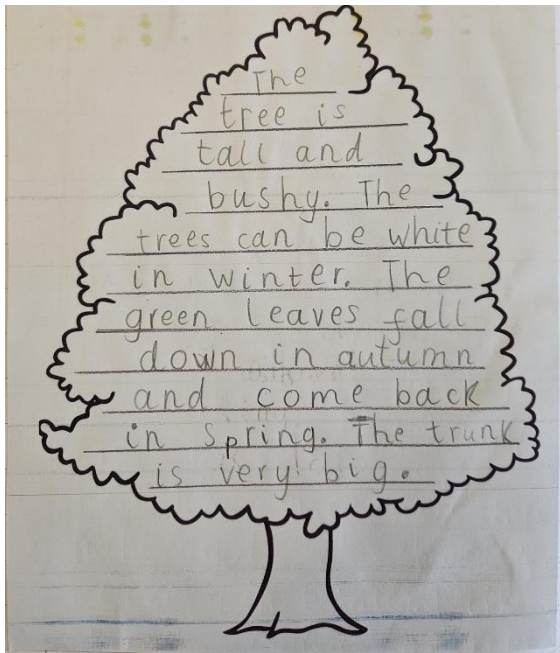 The
tree is
tall and
bushy. The
trees can be white
in winter. The
green leaves fall
down in autumn
and come back
in spring. The trunk
is very big.